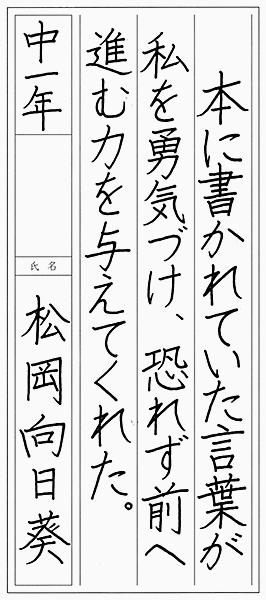 本に書かれていた言葉が
私を勇気づけ、恐れず前へ
進む力を与えてくれた。
中一年
氏名
松岡向日葵